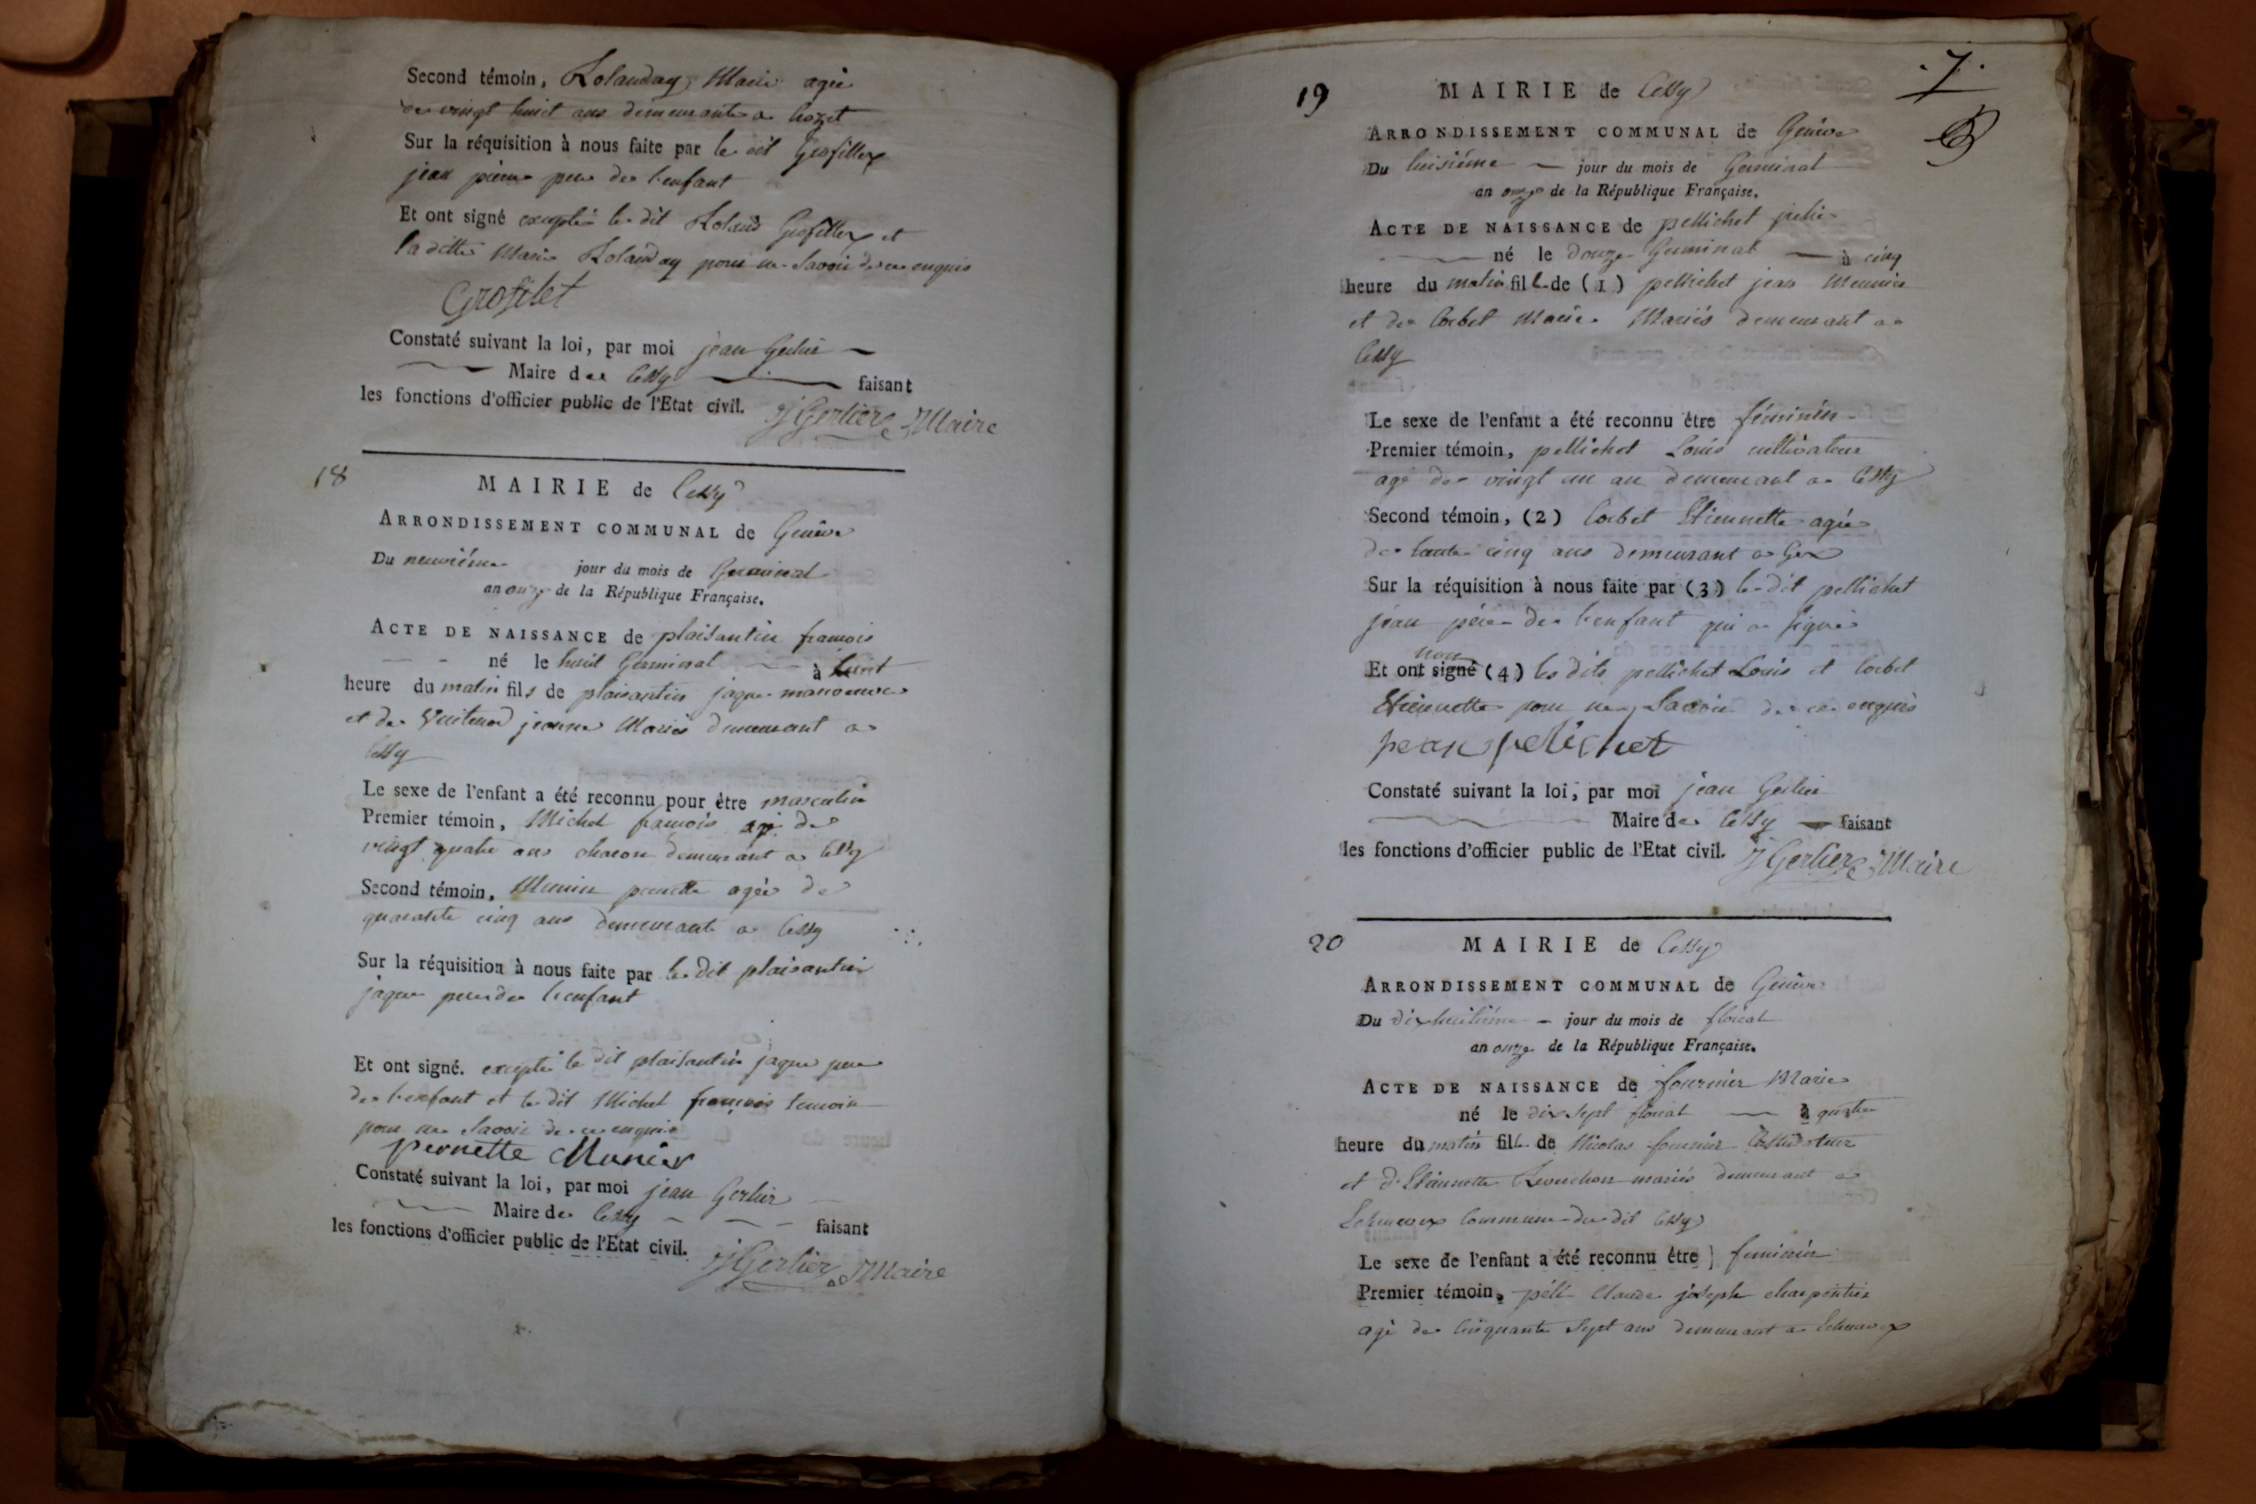 Second témoin, Rolanday Marie agée
de vingt huit ans demeurante a Crozet
Sur la réquisition à nous faite par le dit Grosfillex
jean pierre pere de l'enfant
Et ont signé excepté le dit Roland Grosfillex et
la ditte Marie Rolanday pour ne savoir de ce enquis
Grosfilet
Constaté suivant la loi, par moi jean Gerlier
Maire de Cessy faisant
les fonctions d'officier public de l'Etat civil. J Gerlier Maire
18
MAIRIE de Cessy
ARRONDISSEMENT COMMUNAL de Genève
Du neuviéme jour du mois de Germinal
an onze de la République Française.
ACTE DE NAISSANCE de plaisantin francois
né le huit Germinal à huit
heure du matin fils de plaisantin jaque manoeuvre
et de jeanne Mariés demeurant a
Cessy
Le sexe de l'enfant a été reconnu pour être masculin
Premier témoin, Michel francois agé de
vingt quatre ans charon demeurant a Cessy
Second témoin, Munier pernette agée de
quarante cinq ans demeurante a Cessy
Sur la réquisition à nous faite par le dit plaisantin
jaque pere de l'enfant
Et ont signé. excepté le dit plaisantin jaque pere
de l'enfant et le dit Michel francois temoin
pour ne savoir de ce enquis
pernette Munier
Constaté suivant la loi, par moi jean Gerlier
Maire de Cessy faisant
les fonctions d'officier public de l'Etat civil. J Gerlier Maire
.7.
19
MAIRIE de Cessy
ARRONDISSEMENT COMMUNAL de Genève
Du jour du mois de Germinal
an onze de la République Française.
ACTE DE NAISSANCE de pellichet julie
né le douze Germinal à cinq
heure du matin fille de (1) pellichet jean Meunier
et de Corbet Marie Mariés demeurant a
Cessy
Le sexe de l'enfant a été reconnu être féminin
Premier témoin, pellichet Louis cultivateur
agé de vingt un an demeurant a Cessy
Second témoin, (2) Corbet Etiennette agée
de trente cinq ans demeurant a Gex
Sur la réquisition à nous faite par (3) le dit pellichet
jean pére de l'enfant qui a signé
non
Et ont signé (4) les dits pellichet Louis et Corbet
Etiennette pour ne savoir de ce enquis
jean pelichet
Constaté suivant la loi, par moi jean Gerlier
Maire de Cessy faisant
les fonctions d'officier public de l'Etat civil. J Gerlier Maire
20
MAIRIE de Cessy
ARRONDISSEMENT COMMUNAL de Genève
Du dixhuitiéme jour du mois de floréal
an onze de la République Française.
ACTE DE NAISSANCE de fournier Marie
né le dix sept floréal à quatre
heure du matin fille de Nicolas fournier Cultivateur
et d'Etiennette mariés demeurant a
Echenevex Commune du dit Cessy
Le sexe de l'enfant a été reconnu être feminin
Premier témoin, Claude joseph charpentier
agé de cinquante sept ans demeurant a Echenevex